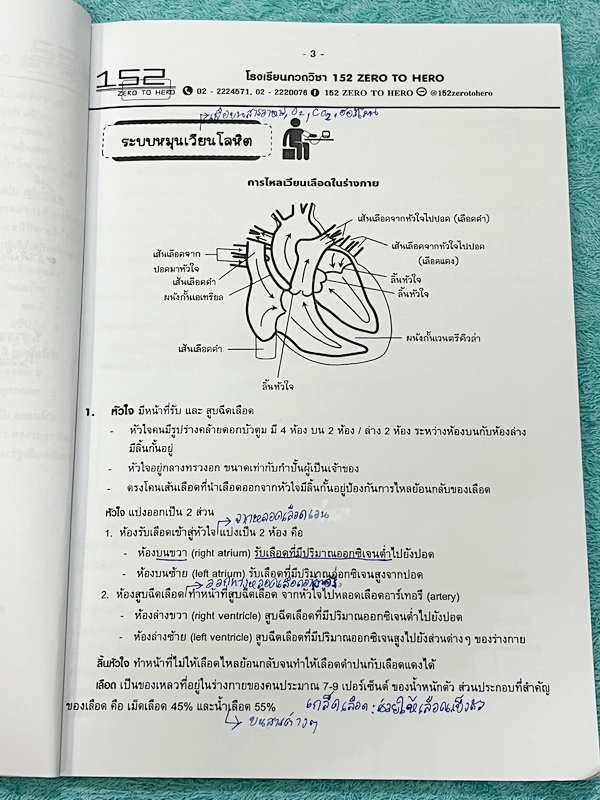 - 3 -
152
ZERO TO HERO
โรงเรียนกวดวิชา 152 ZERO TO HERO
02 - 2224571, 02 - 2220076 152 ZERO TO HERO @152zerotohero
O2, CO2, ฮอร์โมน
ระบบหมุนเวียนโลหิต
การไหลเวียนเลือดในร่างกาย
เส้นเลือดจากหัวใจไปปอด (เลือดดำ)
เส้นเลือดจากหัวใจไปปอด
(เลือดแดง)
เส้นเลือดจาก
ปอดมาหัวใจ
ลิ้นหัวใจ
เส้นเลือดดำ
ลิ้นหัวใจ
ผนังกั้นเอเทรียล
ผนังกั้นเวนตริคิวล่า
เส้นเลือดดำ
ลิ้นหัวใจ
1. หัวใจ มีหน้าที่รับ และ สูบฉีดเลือด
- หัวใจคนมีรูปร่างคล้ายดอกบัวตูม มี 4 ห้อง บน 2 ห้อง / ล่าง 2 ห้อง ระหว่างห้องบนกับห้องล่าง
มีลิ้นกั้นอยู่
- หัวใจอยู่กลางทรวงอก ขนาดเท่ากับกำปั้นผู้เป็นเจ้าของ
- ตรงโคนเส้นเลือดที่นำเลือดออกจากหัวใจมีลิ้นกั้นอยู่ป้องกันการไหลย้อนกลับของเลือด
หัวใจ แบ่งออกเป็น 2 ส่วน
จากหลอดเลือดเวน
1. ห้องรับเลือดเข้าสู่หัวใจ แบ่งเป็น 2 ห้อง คือ
- ห้องบนขวา (right atrium) รับเลือดที่มีปริมาณออกซิเจนต่ำไปยังปอด
- ห้องบนซ้าย (left atrium) รับเลือดที่มีปริมาณออกซิเจนสูงจากปอด
2. ห้องสูบฉีดเลือด ทำหน้าที่สูบฉีดเลือด จากหัวใจไปหลอดเลือดอาร์เทอรี (artery)
- ห้องล่างขวา (right ventricle) สูบฉีดเลือดที่มีปริมาณออกซิเจนต่ำไปยังปอด
- ห้องล่างซ้าย (left ventricle) สูบฉีดเลือดที่มีปริมาณออกซิเจนสูงไปยังส่วนต่างๆ ของร่างกาย
ลิ้นหัวใจ ทำหน้าที่ไม่ให้เลือดไหลย้อนกลับจนทำให้เลือดดำปนกับเลือดแดงได้
เลือด เป็นของเหลวที่อยู่ในร่างกายของคนประมาณ 7-9 เปอร์เซ็นต์ ของน้ำหนักตัว ส่วนประกอบที่สำคัญ
ของเลือด คือ เม็ดเลือด 45% และน้ำเลือด 55%
เกล็ดเลือด : ช่วยให้เลือดแข็งตัว
ขนส่งต่างๆ